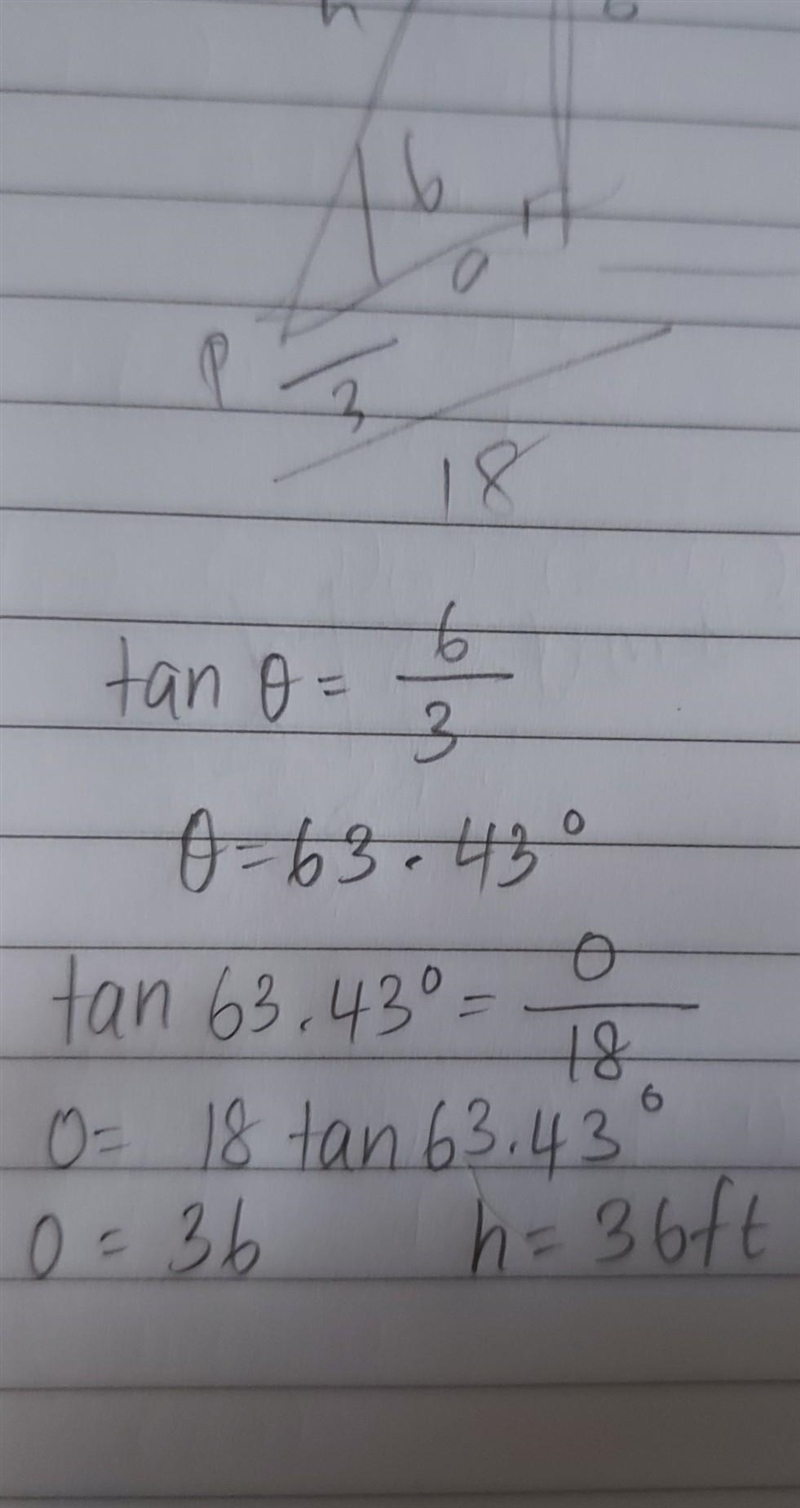 h
6
a
P
3
18
tan θ = 6/3
θ = 63.43°
tan 63.43° = O/18
O = 18 tan 63.43°
O = 36 h = 36ft